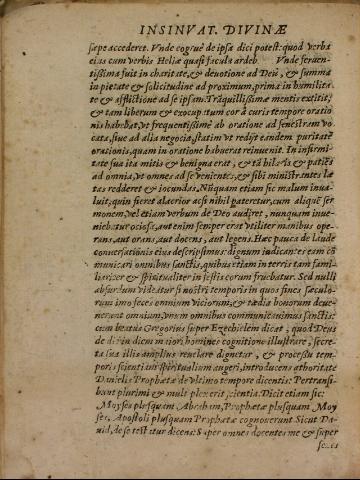 INSINVAT. DIVINÆ
sæpe accederet. Vnde cõgruè de ipsa dici potest: quod verba
eius cum verbis Heliæ quasi facula ardeb. Vnde feruen-
tißima fuit in charitate, & deuotione ad Deũ, & summa
in pietate & solicitudine ad proximum, prima in humilita
te & afflictione ad se ipsam. Trãquillißimæ mentis extitit,
& tam liberum & exocupatum cor à curis tempore oratio
nis habebat, vt frequentißimè ab oratione ad fenestram vo
cata, siue ad alia negocia, statim vt redijt eandem puritatẽ
orationis, quam in oratione habuerat reinuenit. In infirmi
tate sua ita mitis & benigna erat, & tã hilaris & patiẽs
ad omnia, vt omnes ad se venientes, & sibi ministrantes læ
tas redderet & iocundas. Nũquam etiam sic malum inua-
luit, quin fieret alacrior acsi nihil pateretur, cum aliquẽ ser
monem, vel etiam verbum de Deo audiret, nunquam inue-
niebatur ociosa, aut enim semper erat vtiliter manibus ope-
rans, aut orans, aut docens, aut legens. Hæc pauca de laude
conuersationis eius descripsimus: dignum iudicantes eam cõ
municari omnibus sanctis, quibus etiam in terris tam famil-
iariter & spiritualiter in lætitia eorum fruebatur. Sed nulli
absurdum videatur si nostri temporis in quos fines sæculo-
rum imo feces omnium viciorum, & tædia bonorum deue-
nerunt omnium, vnum omnibus communicauimus sanctis:
cum beatus Gregorius super Ezechielem dicat, quod Deus
de die in diem maiori homines cognitione illustrare, secre-
ta sua illis amplius reuelare dignetur, & processu tem-
poris scientiam spiritualium augeri, introducens authoritatẽ
Danielis Prophetæ de vltimo tempore dicentis: Pertransi-
bunt plurimi & multiplex erit scientia. Dicit etiam sic:
Moyses plusquam Abraham, Prophetæ plusquam Moy
ses, Apostoli plusquam Prophetæ cognouerunt Sicut Da-
uid, de se testatur dicens: Super omnes docentes me & super
senes